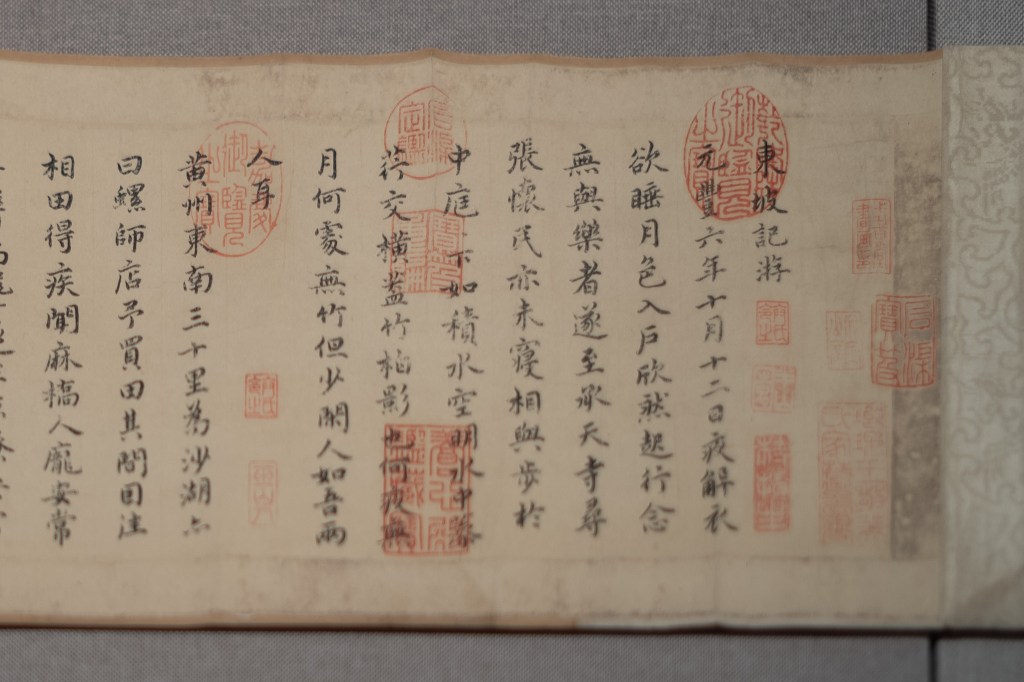 東坡記游
元豐六年十月十二日夜解衣
欲睡月色入戶欣然起行念
無與樂者遂至承天寺尋
張懷民亦未寢相與步於
中庭下如積水空明水中藻
荇交橫蓋竹柏影也何夜無
月何處無竹但少閑人如吾兩
人耳
黃州東南三十里為沙湖亦
曰螺師店予買田其間因往
相田得疾聞麻橋人龐安常